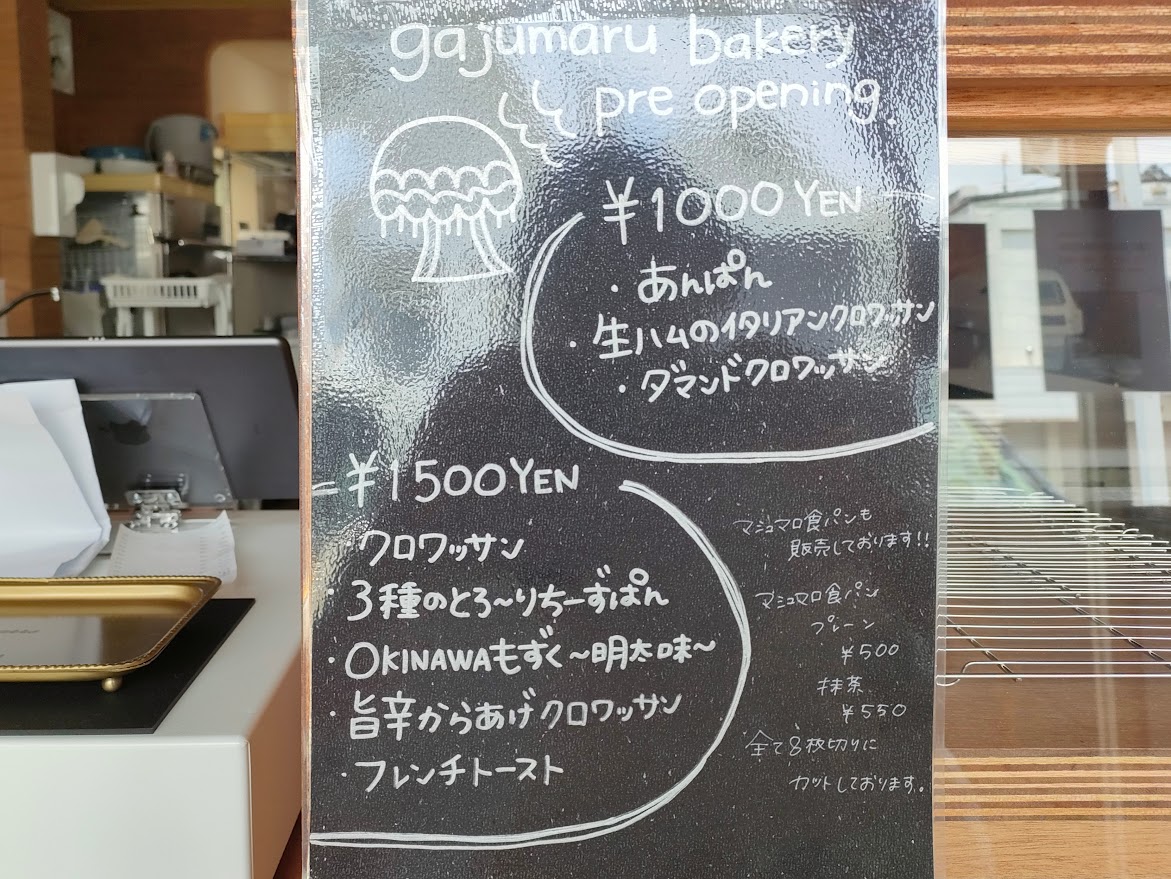 gajumaru bakery
pre opening.
¥1000 YEN
・あんぱん
・生ハムのイタリアンクロワッサン
・ダマンドクロワッサン
¥1500 YEN
クロワッサン
・3種のとろ〜りちーずぱん
・OKINAWAもずく〜明太味〜
・旨辛からあげクロワッサン
・フレンチトースト
マシュマロ食パンも
販売しております!!
マシュマロ食パン
プレーン
¥500
抹茶
¥550
全て8枚切りに
カットしております。